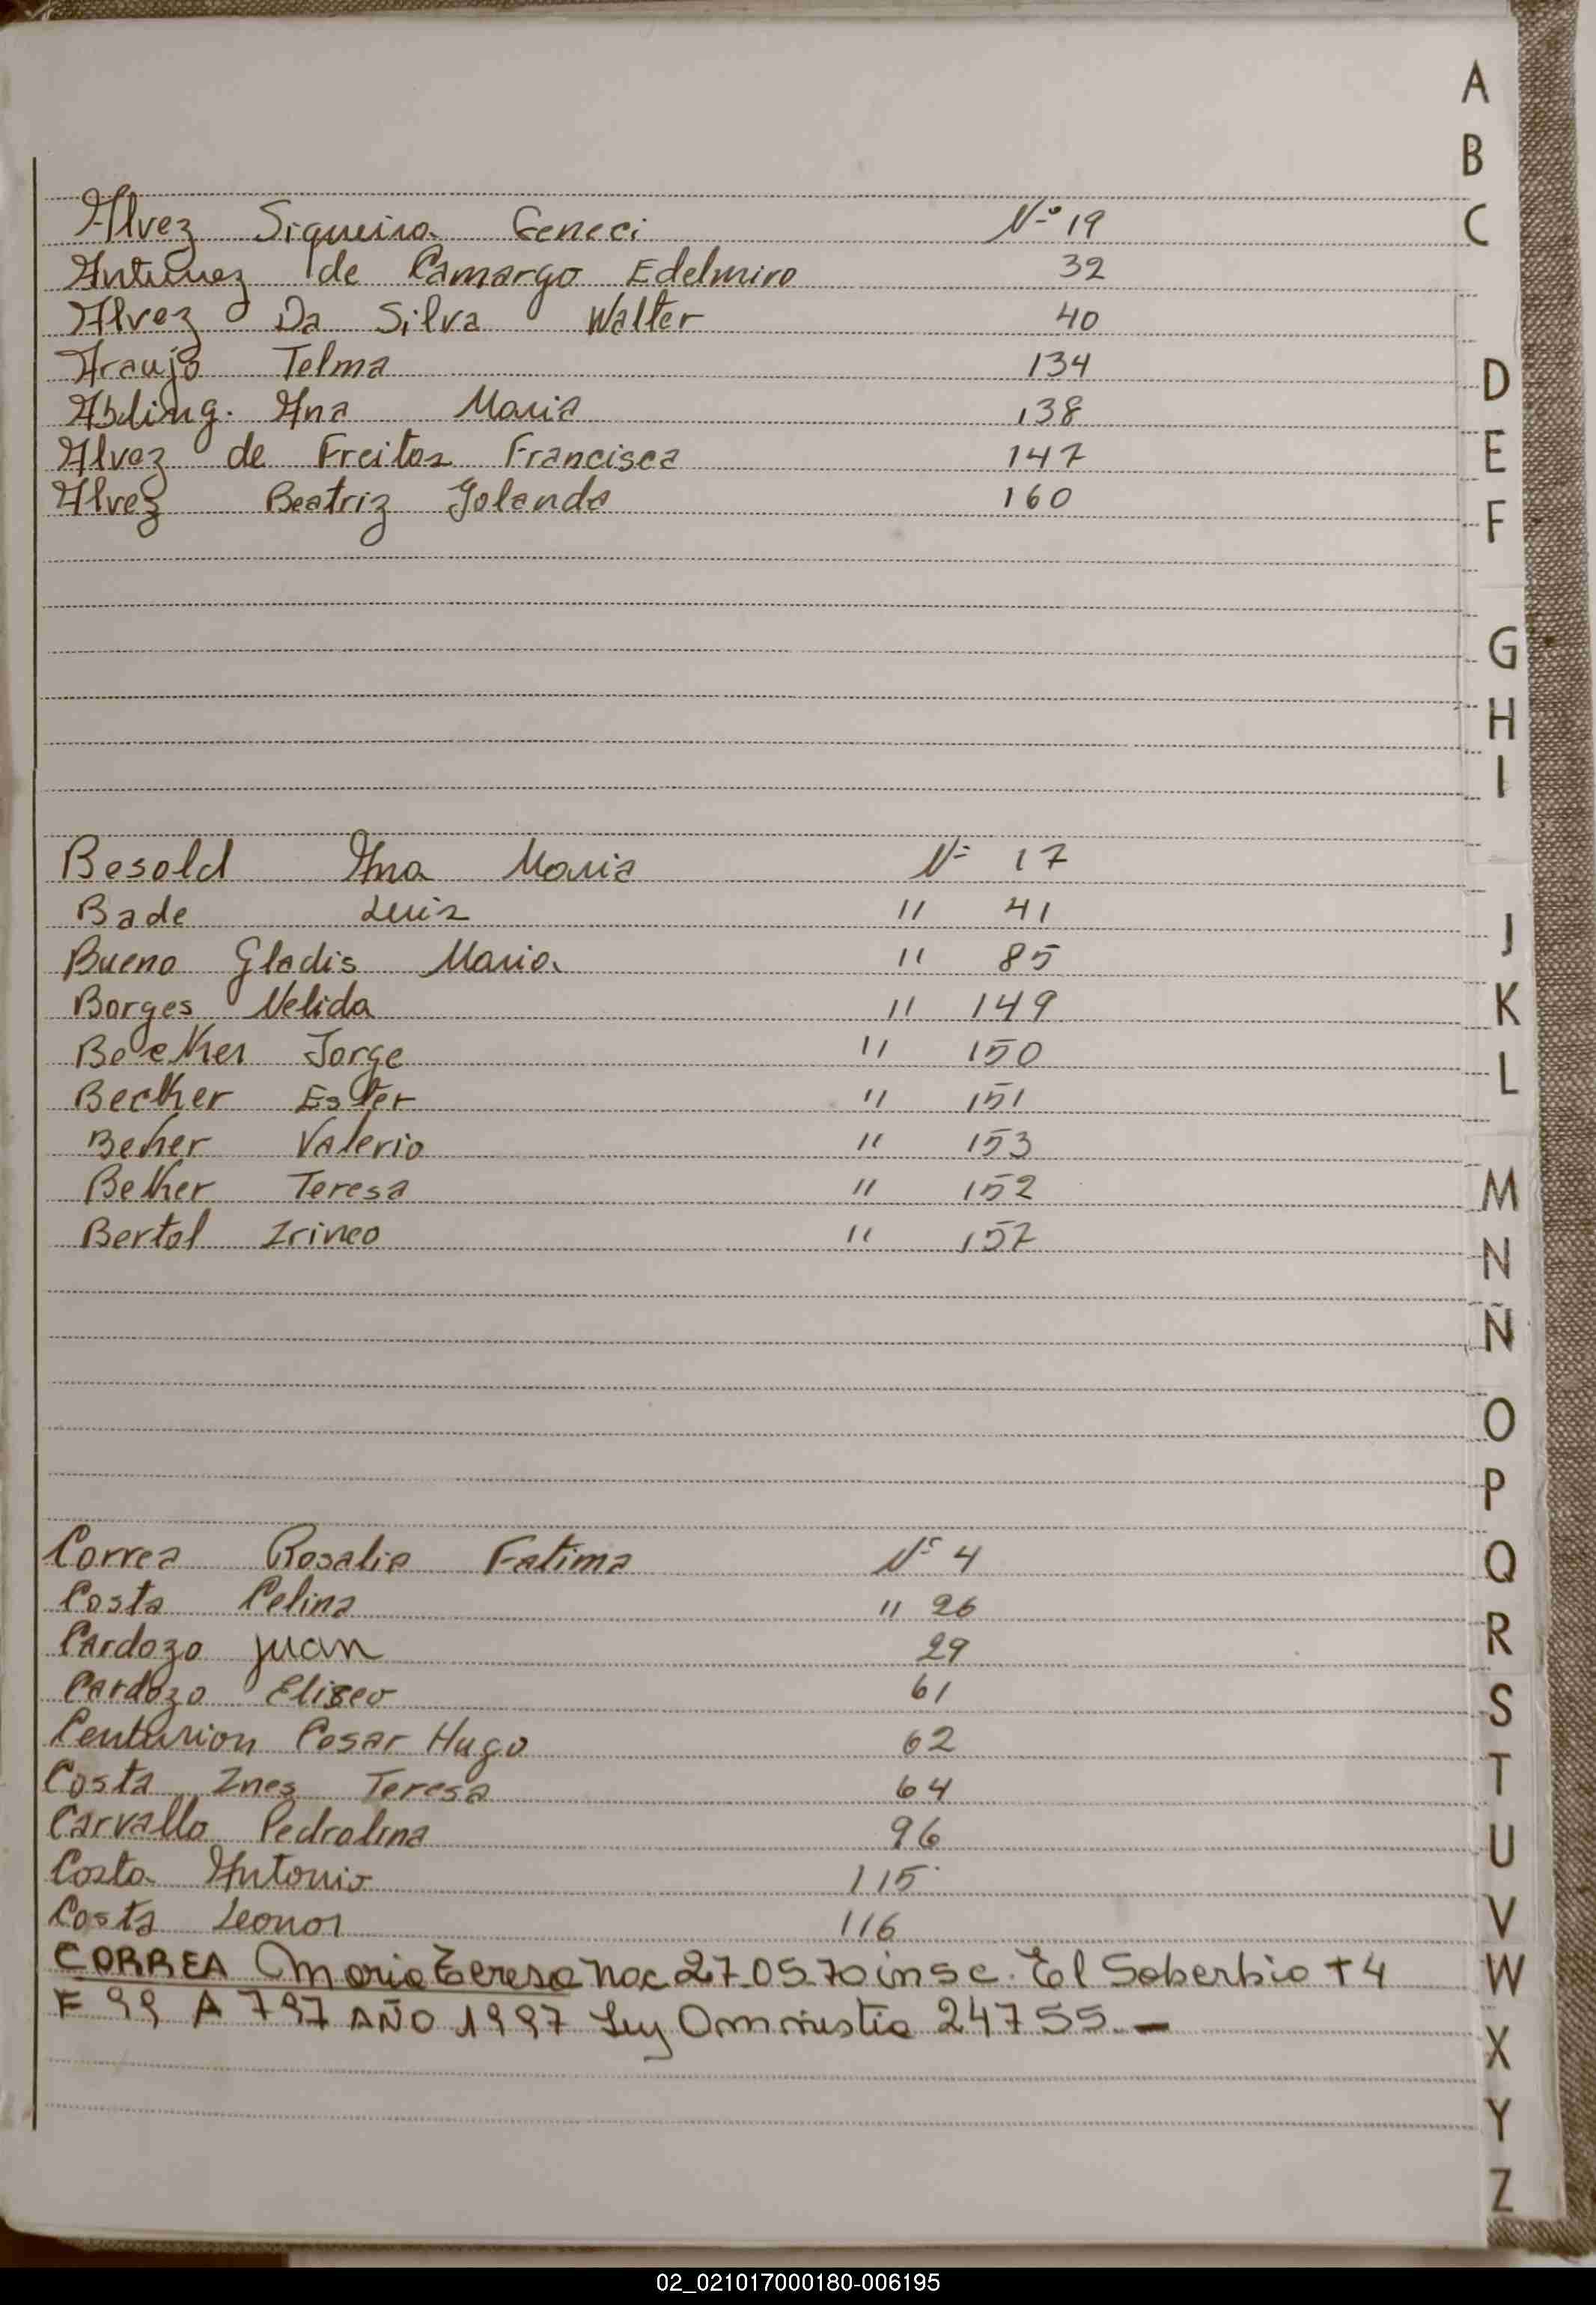 A
B
C
Alvez Siqueira Geneci Nº 19
Antunez de Camargo Edelmiro 32
Alvez Da Silva Walter 40
Araujo Telma 134
Ana Maria 138
Alvez de Freitas Francisca 147
Alvez Beatriz Yolanda 160
D
E
F
G
H
I
Besold Ana Maria Nº 17
Bade Luis " 41
Bueno Gladis Maria " 85
Borges Nelida " 149
Jorge " 150
Becker Ester " 151
Beker Valerio " 153
Beker Teresa " 152
Bertol Irineo " 157
J
K
L
M
N
Ñ
O
P
Correa Rosalia Fatima Nº 4
Costa Celina " 26
Cardozo Juan 29
Cardozo Eliseo 61
Centurion Cesar Hugo 62
Costa Ines Teresa 64
Carvallo Pedrolina 96
Costa Antonio 115
Costa Leonor 116
CORREA Maria Teresa Nac 27.05.70 insc. El Soberbio T 4
F 99 A 797 AÑO 1997 Ley Ammistia 24755.-
Q
R
S
T
U
V
W
X
Y
Z
02_021017000180-006195